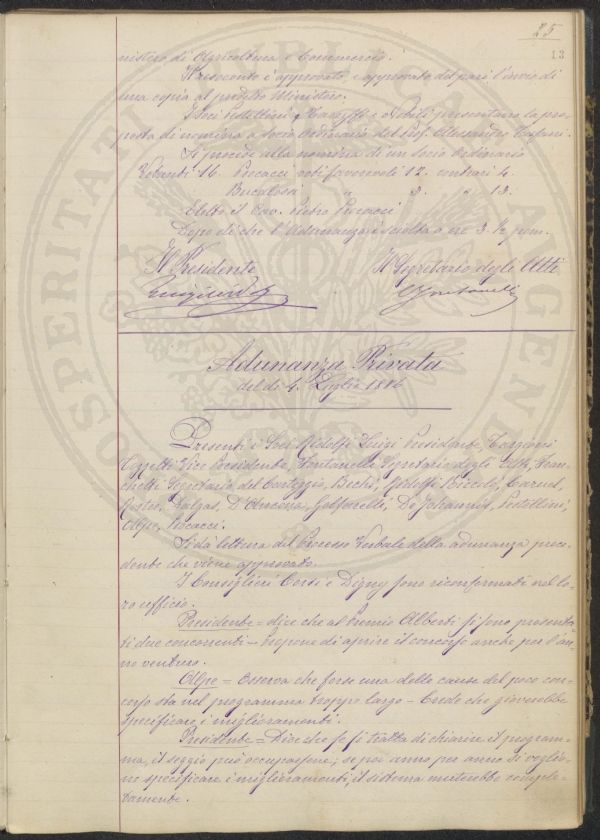 25
13
nistero di Agricoltura e Commercio.
Il resoconto è approvato, e approvato del pari l'invio di
una copia al predetto Ministero.
I Soci Pestellini e presentano la pro-
posta di nomina a socio ordinario del Prof. Alessandro
Si procede alla nomina di un socio Ordinario
Votanti 16. Pucacci voti favorevoli 12. contrari 4.
Bucalossi " 3. " 13.
Eletto il Cav. Pietro
Dopo di che l'Adunanza è sciolta a ore 3 ½ pom.
Il Presidente Il Segretario degli Atti
Adunanza Privata
del dì 4. Luglio 1886
Presenti i Soci Ridolfi Luigi Presidente, Targioni
Tozzetti Vice Presidente, Fontanelli Segretario degli Atti, Fran-
chetti Segretario del Carteggio, Bechi, Ridolfi Niccolò, Caruel,
Roster, D'Ancona, De Johannis, Pestellini,
Alpe,
Si dà lettura del Processo Verbale della adunanza prece-
dente che viene approvato.
I Consiglieri Corsi e Digny sono riconfermati nel lo-
ro ufficio.
Presidente = dice che al Premio Alberti si sono presenta-
ti due concorrenti – propone di aprire il concorso anche per l'an-
no venturo.
Alpe = Osserva che forse una delle cause del poco con-
corso sta nel programma troppo largo – Crede che gioverebbe
specificare i miglioramenti.
Presidente = Dice che se si tratta di chiarire il program-
ma, il seggio può occuparsene; se poi anno per anno si voglio-
no specificare i miglioramenti, il sistema muterebbe comple-
tamente.